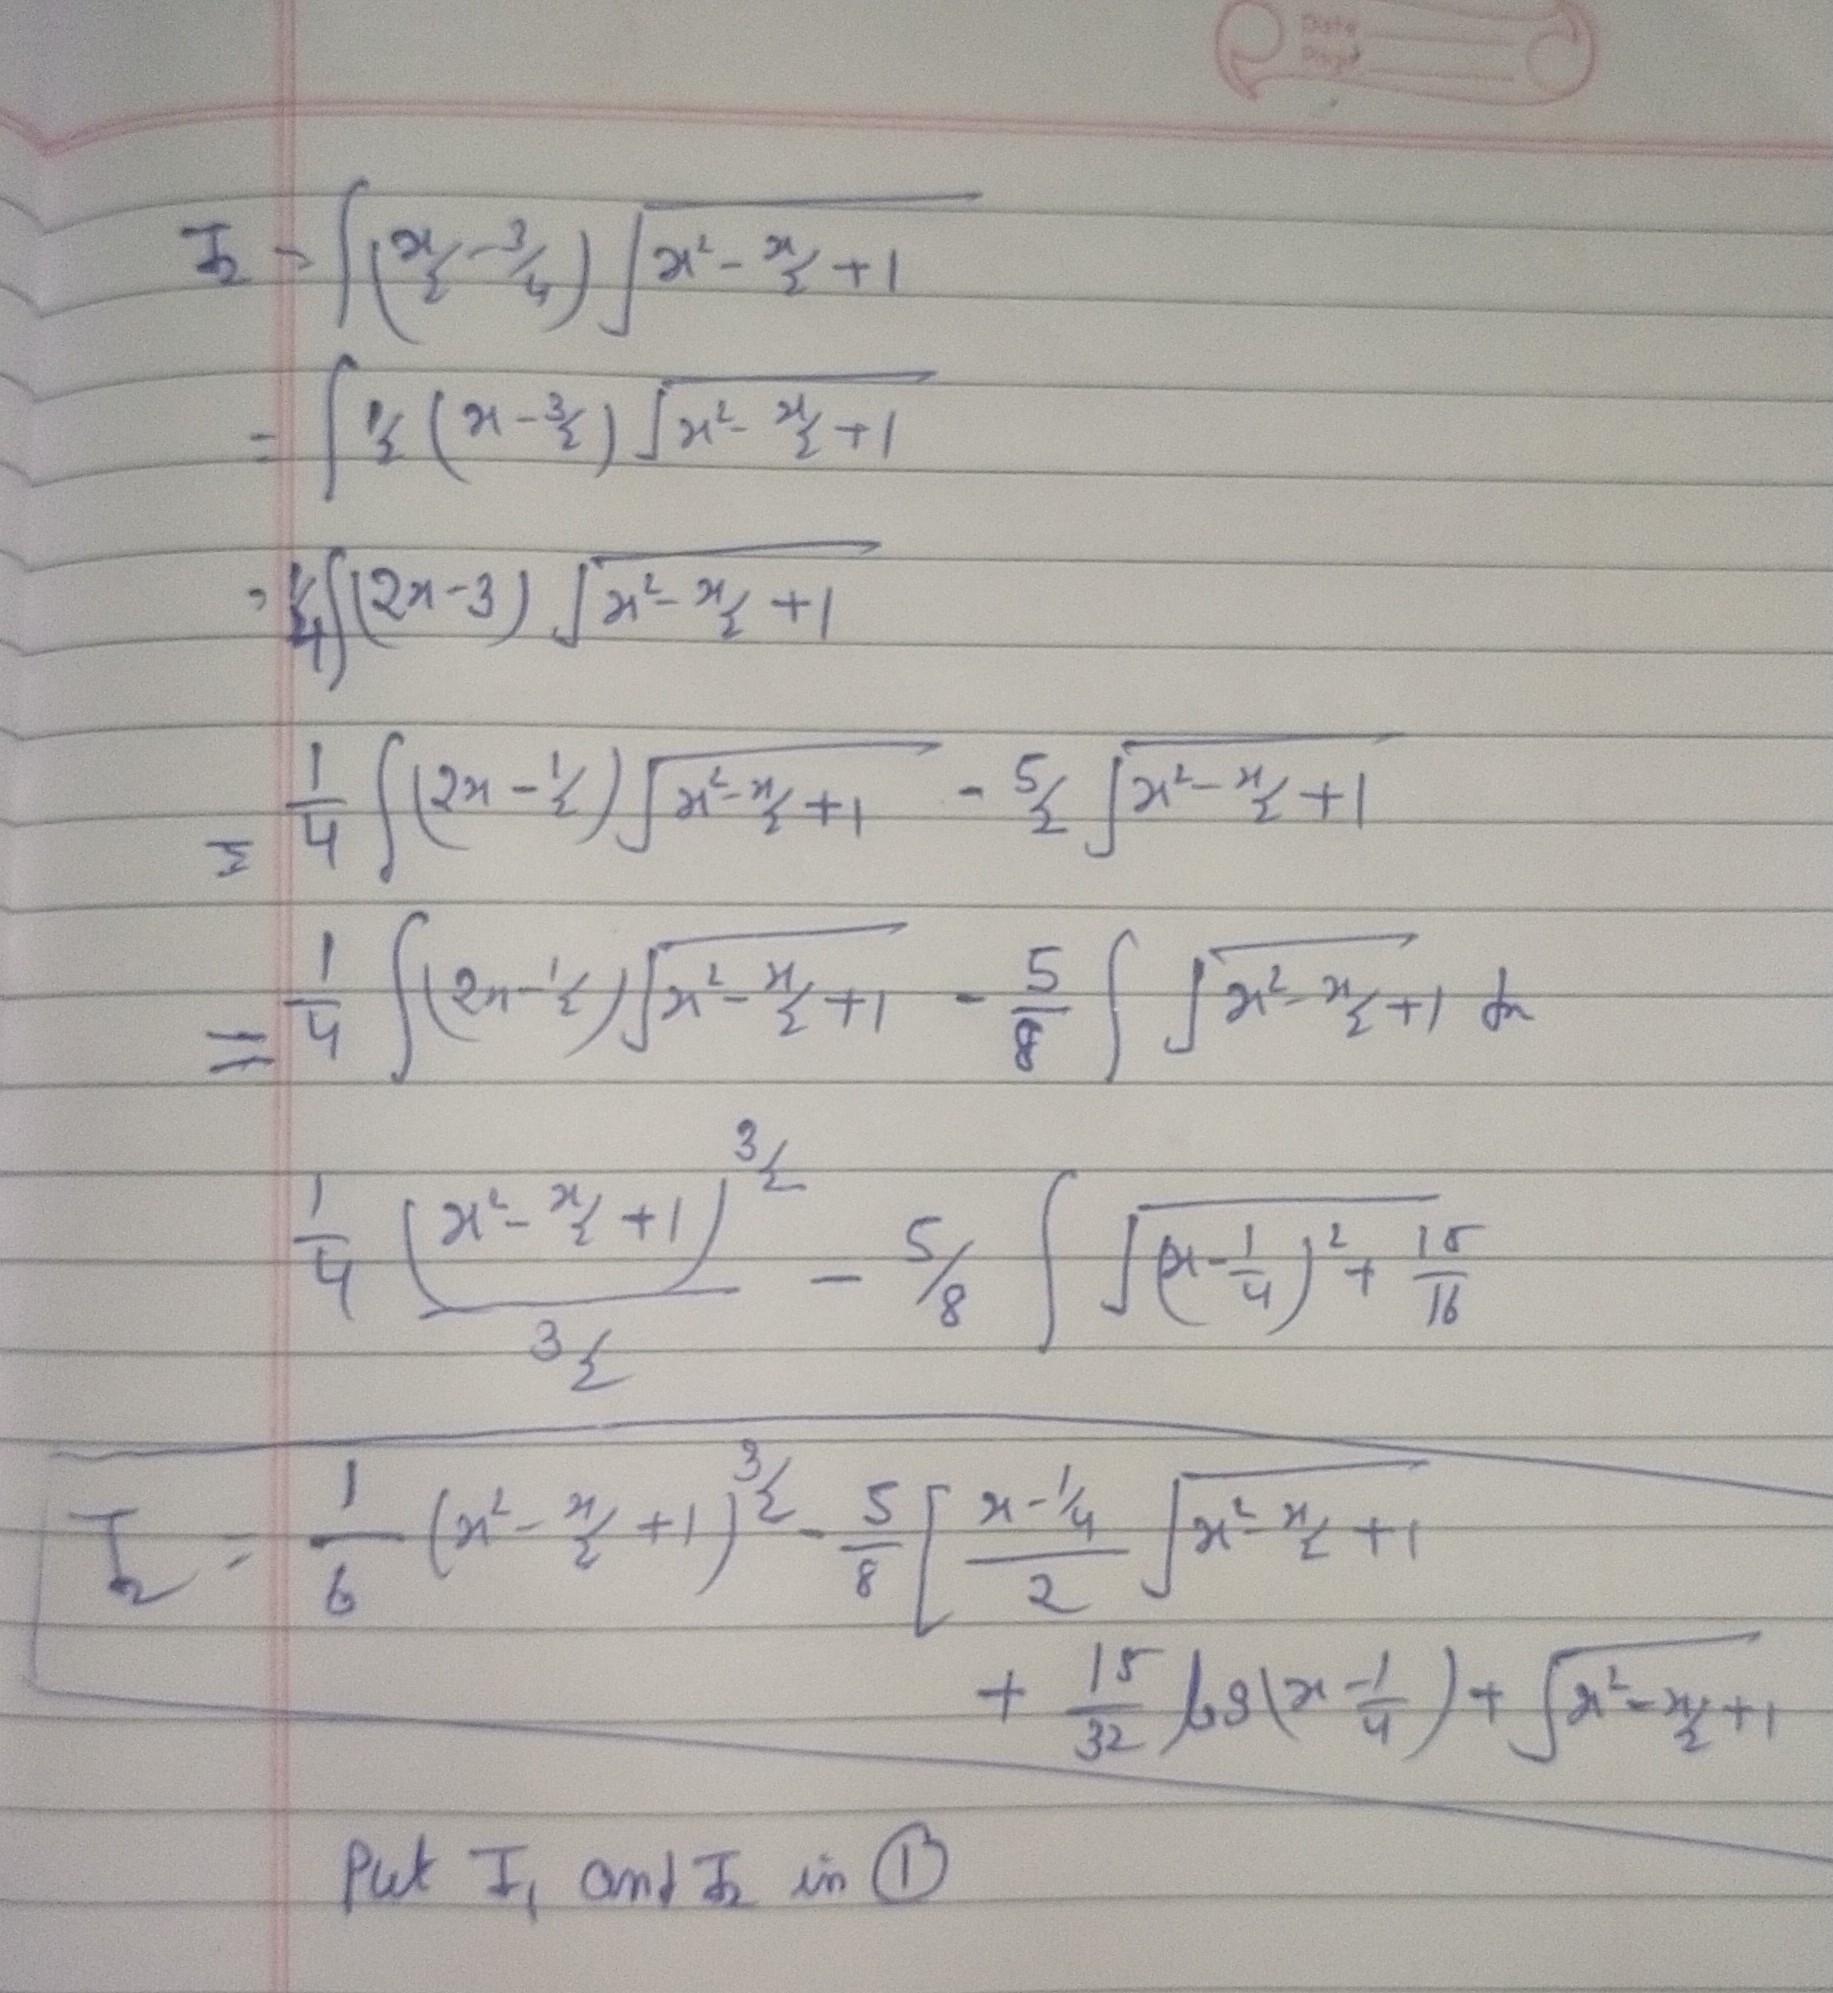 Date
Page
I₂ = ∫(x/2 - 3/4) √(x² - x/2 + 1)
= ∫ 1/2 (x - 3/2) √(x² - x/2 + 1)
= 1/4 ∫(2x - 3) √(x² - x/2 + 1)
= 1/4 ∫(2x - 1/2) √(x² - x/2 + 1) - 5/2 √(x² - x/2 + 1)
= 1/4 ∫(2x - 1/2) √(x² - x/2 + 1) - 5/8 ∫ √(x² - x/2 + 1) dx
1/4 (x² - x/2 + 1)^(3/2) / (3/2) - 5/8 ∫ √((x - 1/4)² + 15/16)
I₂ = 1/6 (x² - x/2 + 1)^(3/2) - 5/8 [ (x - 1/4)/2 √(x² - x/2 + 1)
+ 15/32 log(x - 1/4) + √(x² - x/2 + 1)
Put I₁ and I₂ in ①